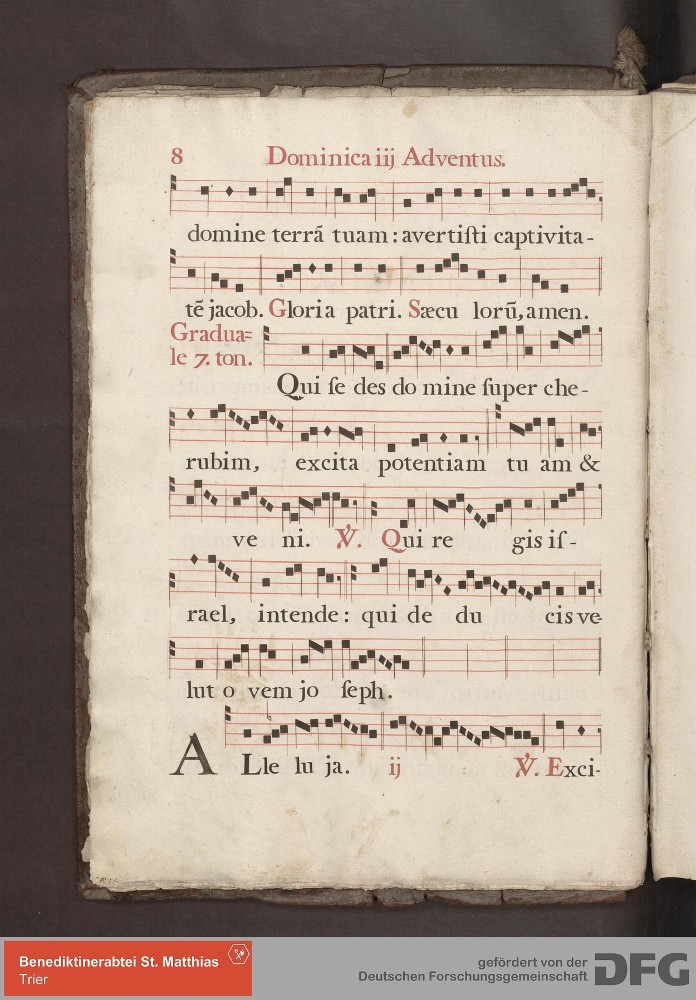 8 Dominica iij Adventus.
domine terrã tuam: avertiſti captivita-
tẽ jacob. Gloria patri. Sæcu lorũ, amen.
Gradua=
le 7. ton.
Qui ſe des do mine ſuper che-
rubim, excita potentiam tu am &
ve ni. ℣. Qui re gis iſ-
rael, intende: qui de du cis ve-
lut o vem jo ſeph.
A Lle lu ja. ij ℣. Exci-
Benediktinerabtei St. Matthias
Trier
gefördert von der
Deutschen Forschungsgemeinschaft
DFG